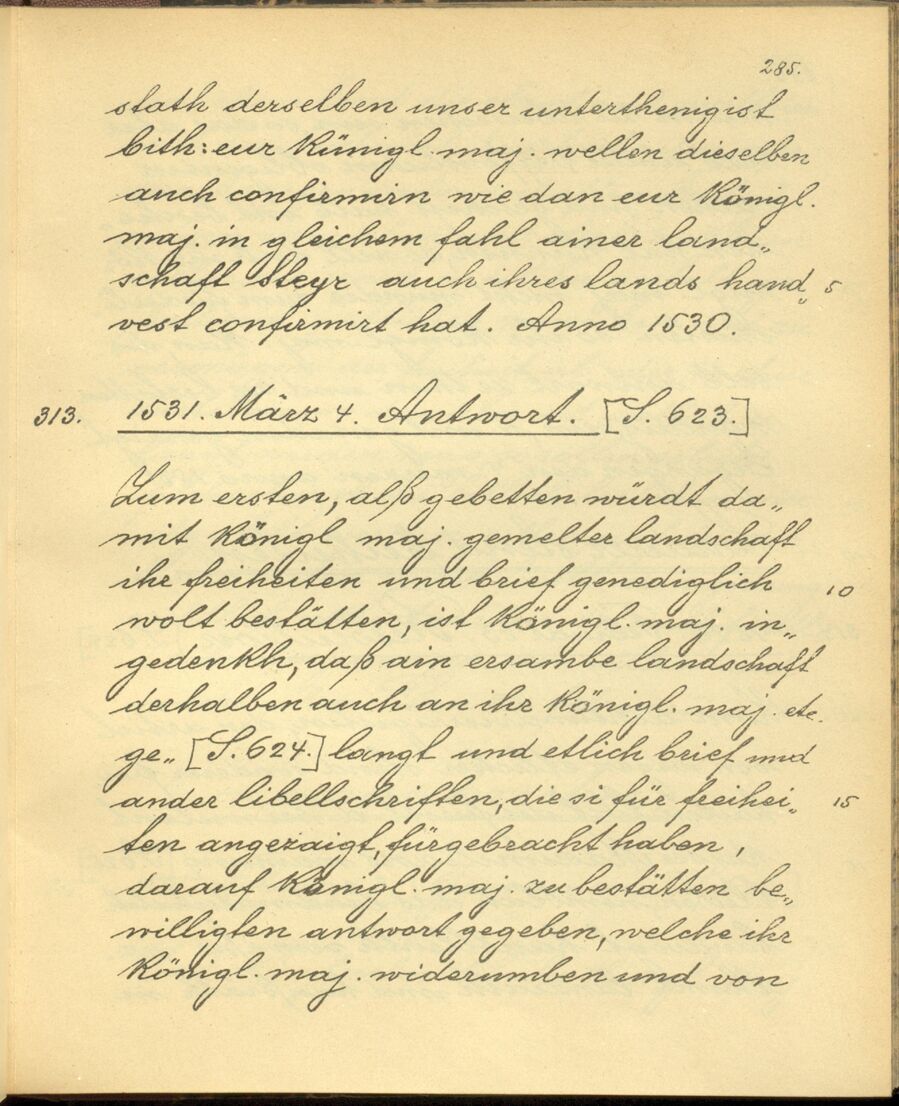 285.
stath derselben unser unterthenigist
bith: eur Künigl. maj. wellen dieselben
auch confirmirn wie dan eur Königl.
maj. in gleichem fahl ainer land„
schaft Steyr auch ihres lands hand„ 5
vest confirmirt hat. Anno 1530.
313. 1531. März 4. Antwort. [S. 623.]
Zum ersten, alß gebetten würdt da„
mit Königl maj. gemelter landschaft
ihr freiheiten und brief genediglich 10
wolt bestätten, ist Königl. maj. in„
gedenkh, daß ain ersambe landschaft
derhalben auch an ihr Königl. maj. etc.
ge„ [S. 624.] langt und etlich brief und
ander libellschriften, die si für freihei„ 15
ten angezaigt, fürgebracht haben,
darauf Königl. maj. zu bestätten be„
willigten antwort gegeben, welche ihr
Königl. maj. widerumben und von